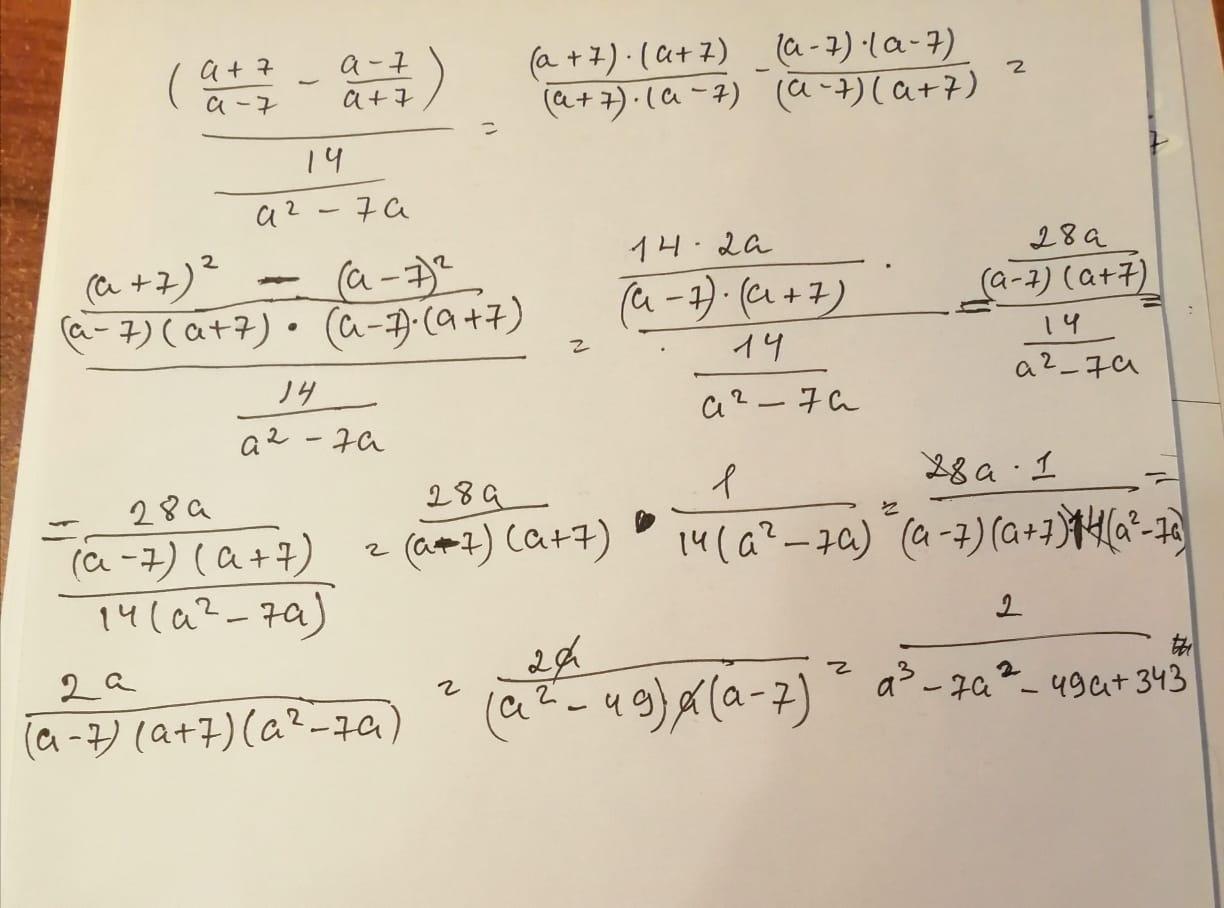 ( (a+7)/(a-7) - (a-7)/(a+7) ) / (14/(a² - 7a)) = (a+7)·(a+7)/(a+7)·(a-7) - (a-7)·(a-7)/(a-7)(a+7) =
(a+7)² - (a-7)² / (a-7)(a+7) · (a-7)·(a+7) / (14/(a² - 7a)) = (14·2a/(a-7)·(a+7)) / (14/(a² - 7a)) = (28a/(a-7)(a+7)) / (14/(a² - 7a)) =
= (28a/(a-7)(a+7)) / 14(a² - 7a) = 28a/(a-7)(a+7) · 1/14(a² - 7a) = 28a·1/(a-7)(a+7)14(a² - 7a) =
2a/(a-7)(a+7)(a² - 7a) = 2a/(a² - 49)a(a-7) = 2/a³ - 7a² - 49a + 343